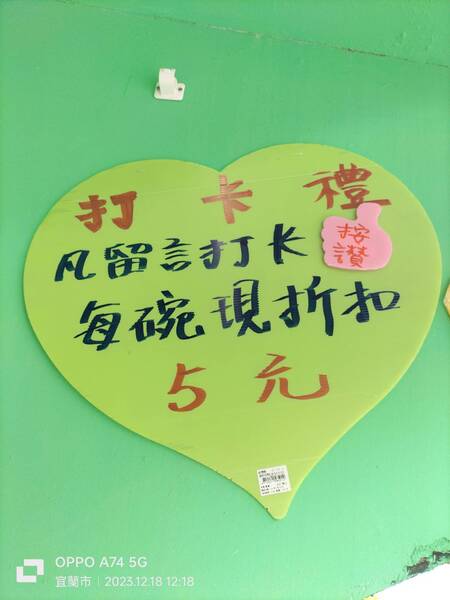 打卡禮
凡留言打卡
按
讚
每碗現折扣
5元
OPPO A74 5G
宜蘭市 | 2023.12.18 12:18